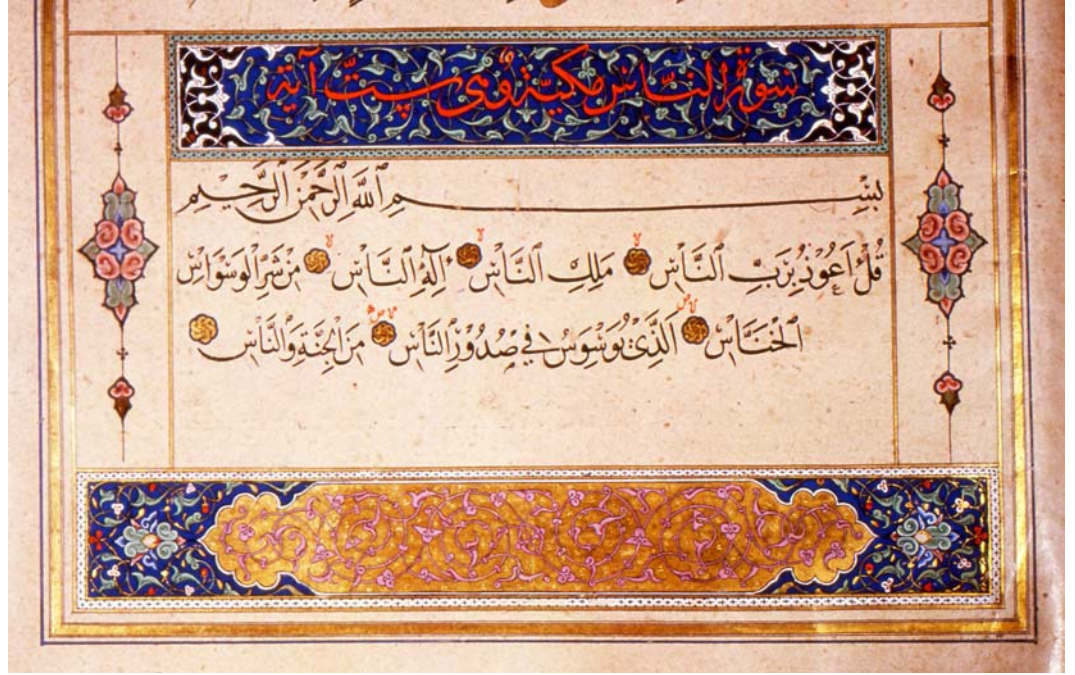 سورة الناس مكية وهي ست آية
بِسْمِ ٱللَّهِ ٱلرَّحْمَٰنِ ٱلرَّحِيمِ
قُلْ اَعُوْذُ بِرَبِّ ٱلنَّاسِ مَلِكِ ٱلنَّاسِ اِلٰهِ ٱلنَّاسِ مِنْ شَرِّ ٱلْوَسْوَاسِ
ٱلْخَنَّاسِ ٱلَّذِيْ يُوَسْوِسُ فِيْ صُدُوْرِ ٱلنَّاسِ مِنَ ٱلْجِنَّةِ وَٱلنَّاسِ